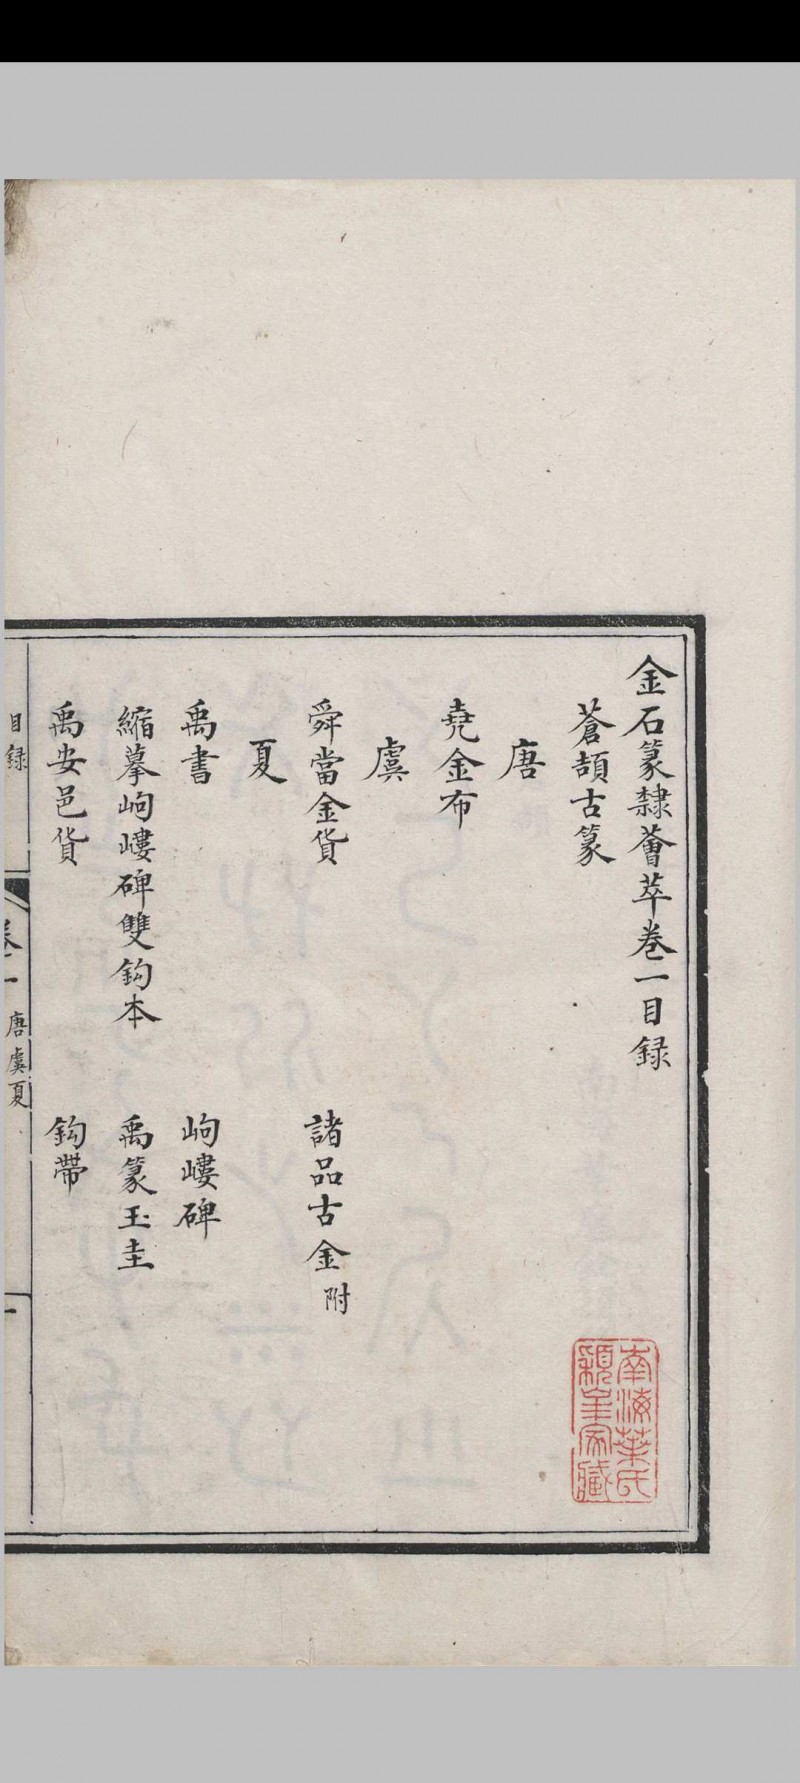 金石篆隸薈萃卷一目録
蒼頡古篆
唐
堯金布
虞
舜當金貨
諸品古金附
夏
禹書
岣嶁碑
縮摹岣嶁碑雙鈎本
禹篆玉圭
禹安邑貨
鈎帶
目録
卷一
唐虞夏
一
南海葉氏
家藏